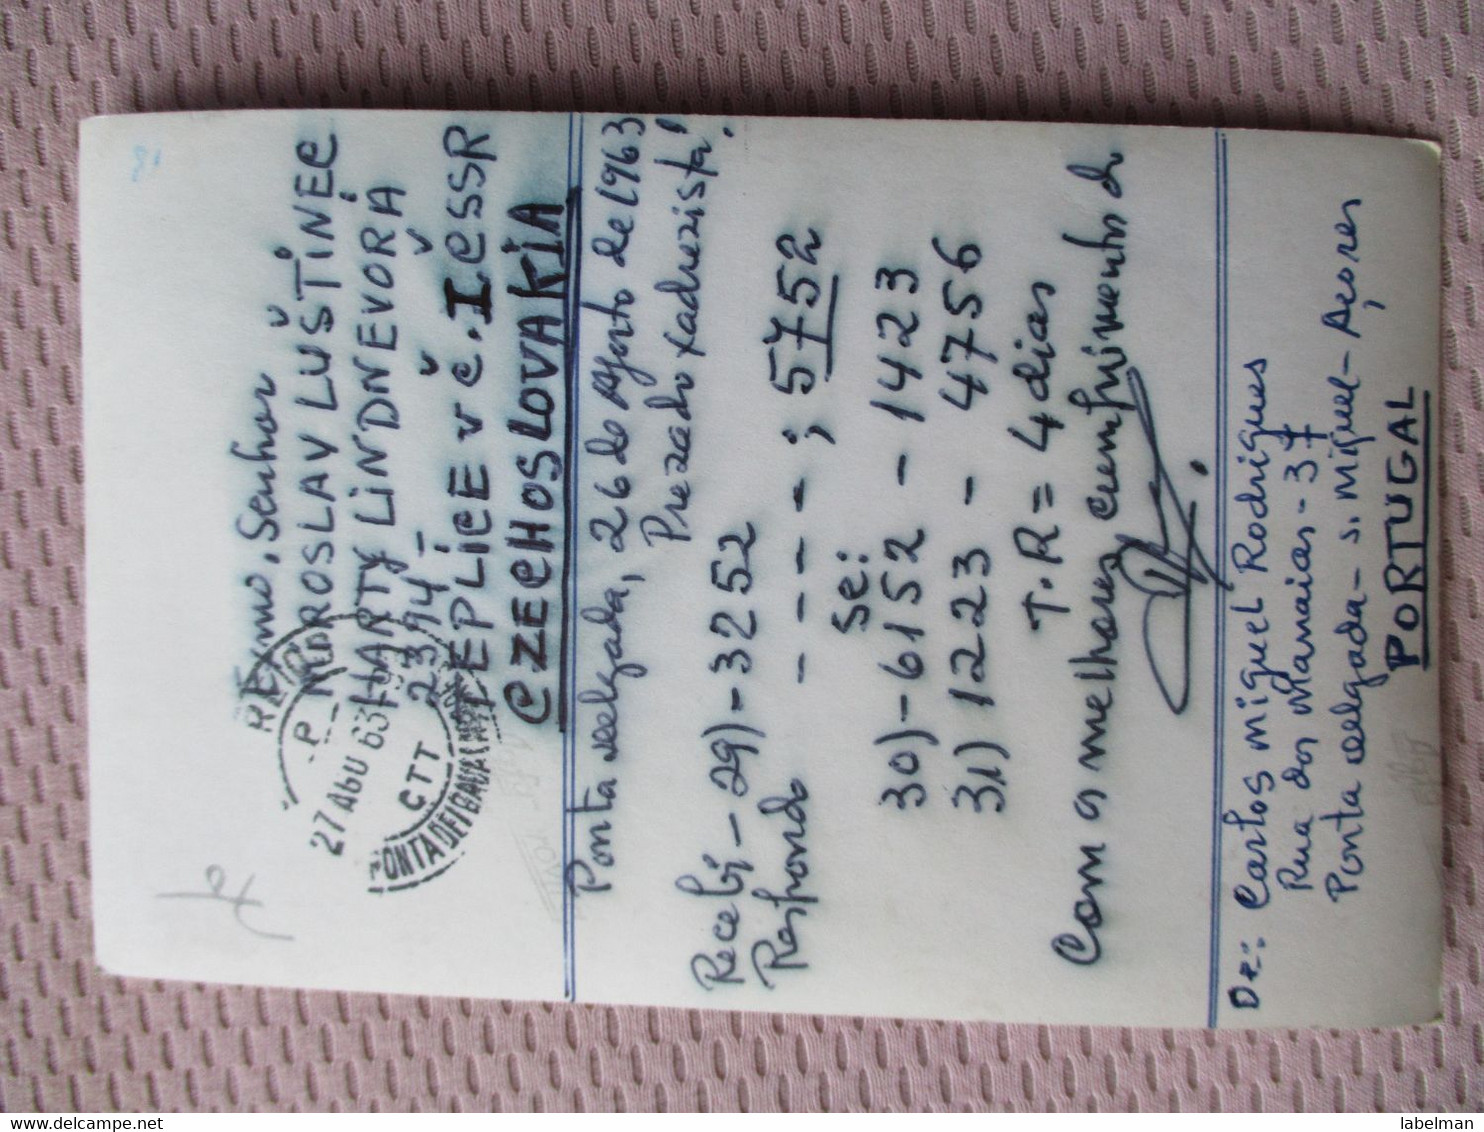 Exmo. Senhor
MIROSLAV LUŠTINEC
HARTY LINDNEVORÁ
2394-
TEPLICE V Č. I. ČSSR
CZECHOSLOVAKIA
27 AGO 63
CTT
PONTA DELGADA
Ponta Delgada, 26 de Agosto de 1963
Prezado xadrezista!
Recebi - 29) - 3252
Respondo - - - - ; 5752
Se:
30) - 6152 - 1423
31) 1223 - 4756
T.R = 4 dias
Com os melhores cumprimentos do
De: Carlos Miguel Rodrigues
Rua dos Manaias - 37
Ponta Delgada - S. Miguel - Açores
PORTUGAL
labelman